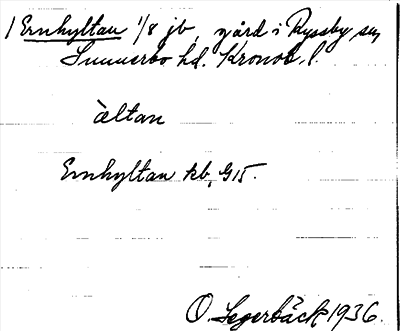 1 Ernhyltan 1/8 jb, gård i Ryssby sn,
Sunnerbo hd. Kronob. l.
àltan
Ernhyltan kb, G15.
O. Segerbäck 1936.